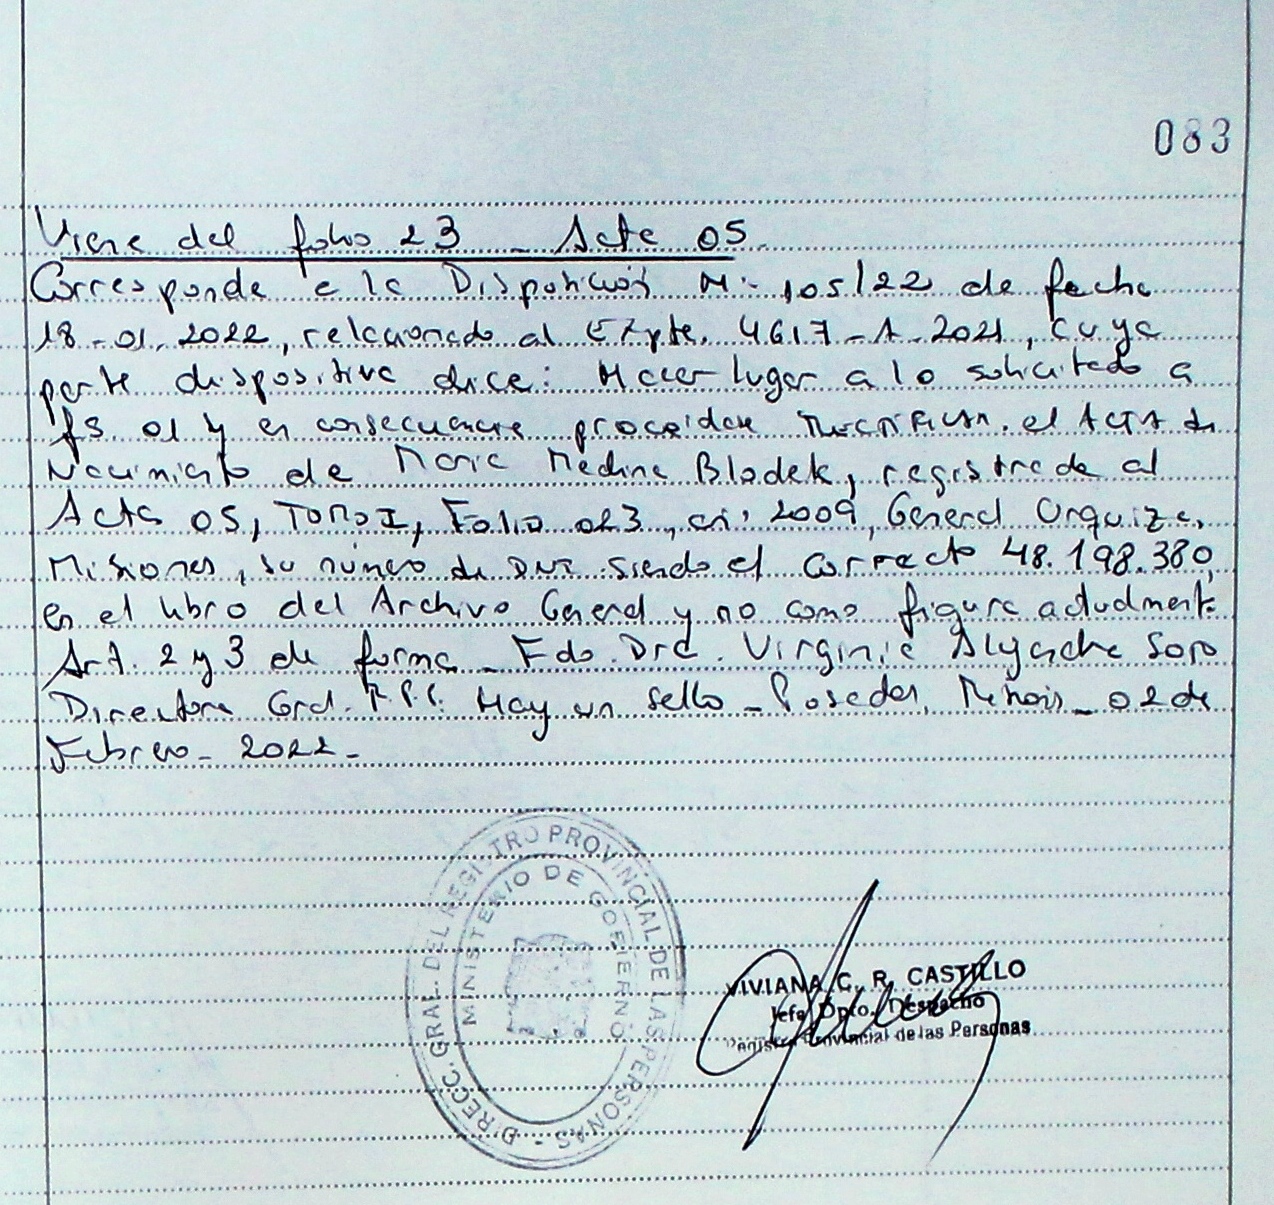 083
Viene del folio 23 _ Acta 05.
Corresponde a la Disposición Nº 105/22 de fecha
18-01-2022, relacionado al Expte. 4617-A-2021, cuya
parte dispositiva dice: Hacer lugar a lo solicitado a
fs 01 y en consecuencia procédase Rectificar el Acta de
Nacimiento de Maria Medina Bladek, registrada al
Acta 05, Tomo I, Folio 023, año 2009, General Urquiza,
Misiones, su número de DNI siendo el correcto 48.198.380,
en el libro del Archivo General y no como figura actualmente
Art. 2 y 3 de forma _ Fdo. Dra. Virginia
Directora Gral. R.P.P. Hay un sello _ Posadas, Misiones _ 02 de
Febrero _ 2022 _
DIRECC. GRAL. DEL REGISTRO PROVINCIAL DE LAS PERSONAS -
MINISTERIO DE GOBIERNO
VIVIANA C. R. CASTILLO
Jefa Dpto. Despacho
Registro Provincial de las Personas